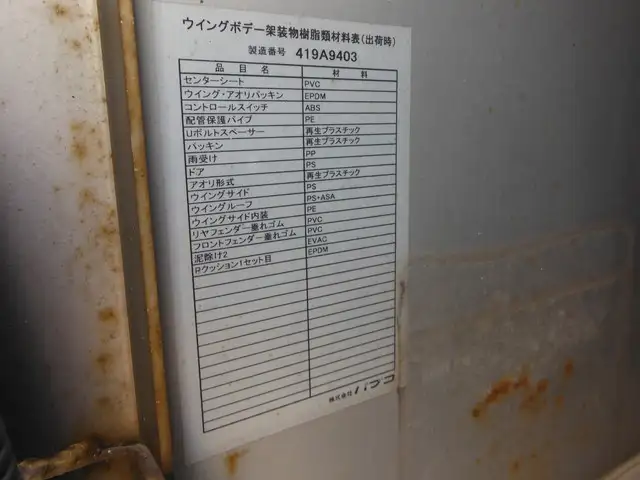 ウイングボデー架装物樹脂類材料表(出荷時)
製造番号 419A9403
品目名 材料
センターシート PVC
ウイング・アオリパッキン EPDM
コントロールスイッチ ABS
配管保護パイプ PE
Uボルトスペーサー 再生プラスチック
パッキン 再生プラスチック
雨受け PP
ドア PS
アオリ形式 再生プラスチック
ウイングサイド PS
ウイングルーフ PS+ASA
ウイングサイド内装 PE
リヤフェンダー垂れゴム PVC
フロントフェンダー垂れゴム PVC
泥除け2 EVAC
Rクッション1セット目 EPDM
株式会社